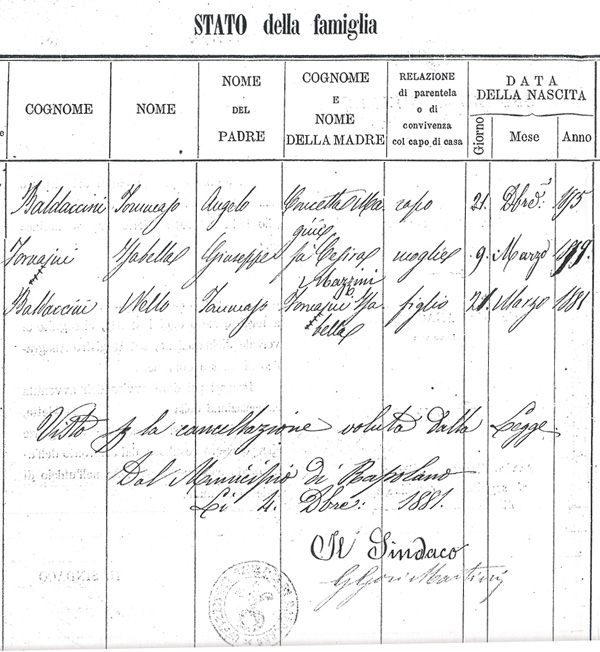 STATO della famiglia
COGNOME NOME NOME DEL PADRE COGNOME E NOME DELLA MADRE RELAZIONE di parentela o di convivenza col capo di casa DATA DELLA NASCITA Giorno Mese Anno
Baldaccini Tommaso Angelo Concetta capo 21. Dbre
Isabella Giuseppe fu Cesira Mazzini moglie 9. Marzo
Baldaccini Nello Tommaso Isabella figlio 21. Marzo 1881
Visto p la cancellazione voluta dalla Legge
Dal Municipio di Rapolano
Li 4. Dbre: 1881.
Il Sindaco